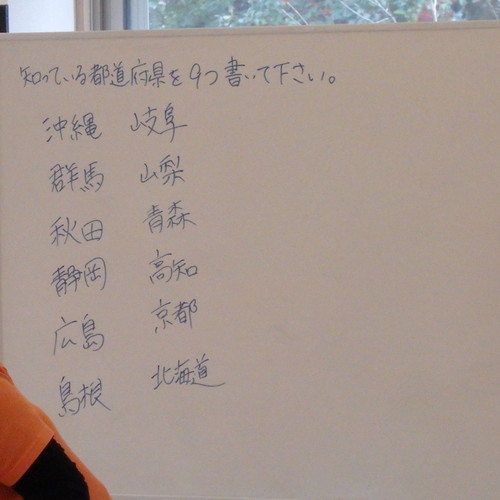 知っている都道府県を9つ書いて下さい。
沖縄 岐阜
群馬 山梨
秋田 青森
静岡 高知
広島 京都
島根 北海道